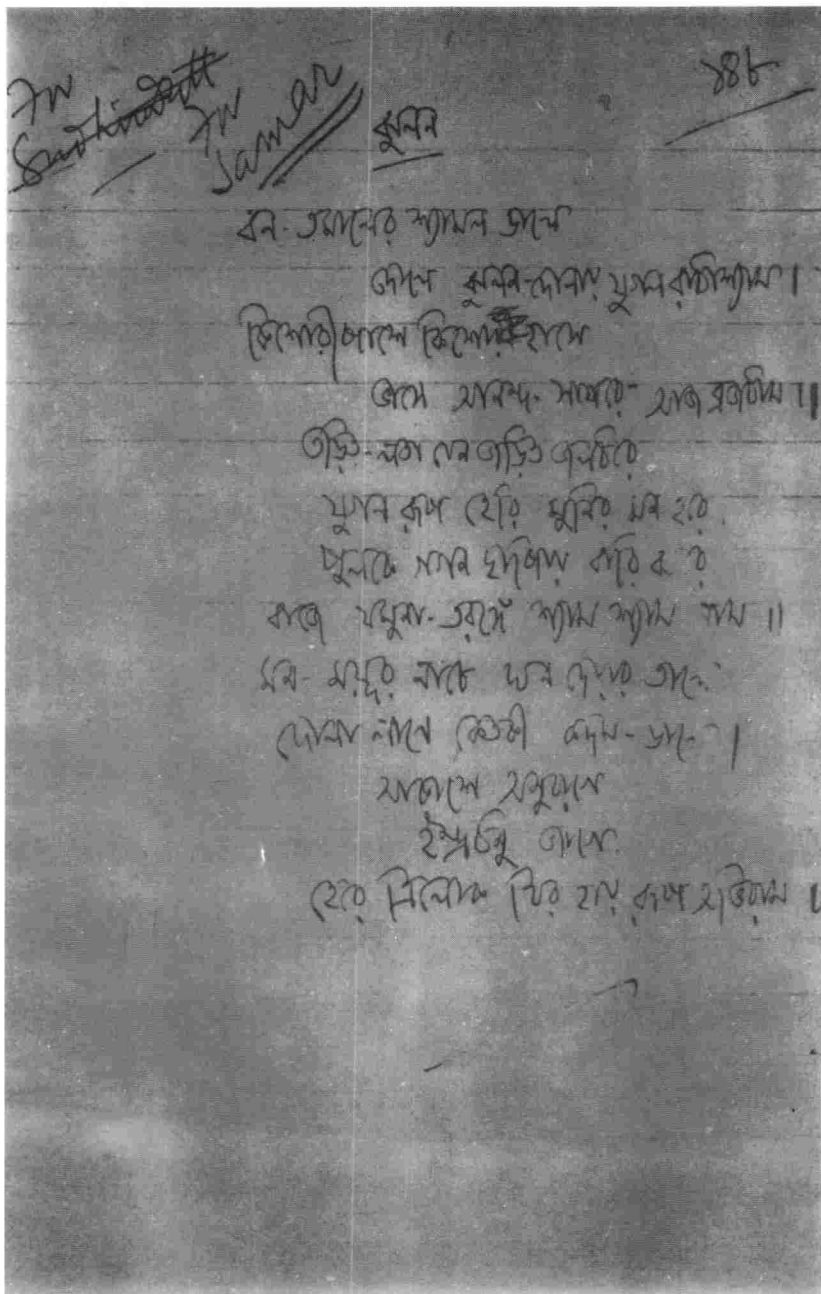 For
Sudhin Dutt
For
Samar
১৪৮
ঝুলন
বন-তমালের শ্যামল ডালে
দোলে ঝুলন-দোলায় যুগল রাধাশ্যাম।
কিশোরী পাশে কিশোর হাসে
ভাসে আনন্দ-সাগরে আজ ব্রজধাম॥
তড়িত-লতা যেন জড়িত জলধরে
যুগল রূপ হেরি মুনির মন হরে
পুলকে গগন ছাপিয়া বারি ঝরে
বাজে যমুনা-তরঙ্গে শ্যাম শ্যাম নাম॥
মন-ময়ূর নাচে ঘন দেয়ার তালে
দোলা লাগে কেতকী কদম-ডালে।
আকাশে অনুরাগে
ইন্দ্রধনু জাগে
হেরে ত্রিলোক থির হয়ে রূপ অভিরাম॥